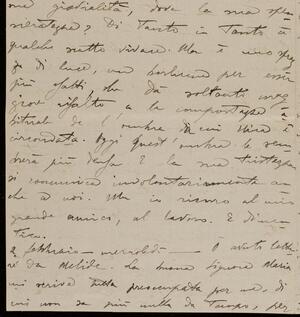 gradualità, dove la sua
? Di tanto in tanto à
qualche motto vivace. Ma è uno spraz-
zo di luce, una
più fatti, che dà soltanto mag-
gior risalto a la compostezza a-
bituale de l'ombra di cui Nina è
circondata. Oggi quest'ombra le sem-
più densa. E la sua tristezza
si comunica involontariamente an-
che a noi. Ma io ritorno al mio
grande amico, al lavoro. E dimen-
tico.
2 febbraio - mercoledì - Ò avuto lette-
re da Melide. La buona signora Maria
mi scrive tutta preoccupata per me, di
cui non sa più nulla da tempo, per